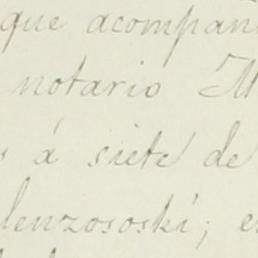 que acompan
notario M
s á siete de
lenzososki; e